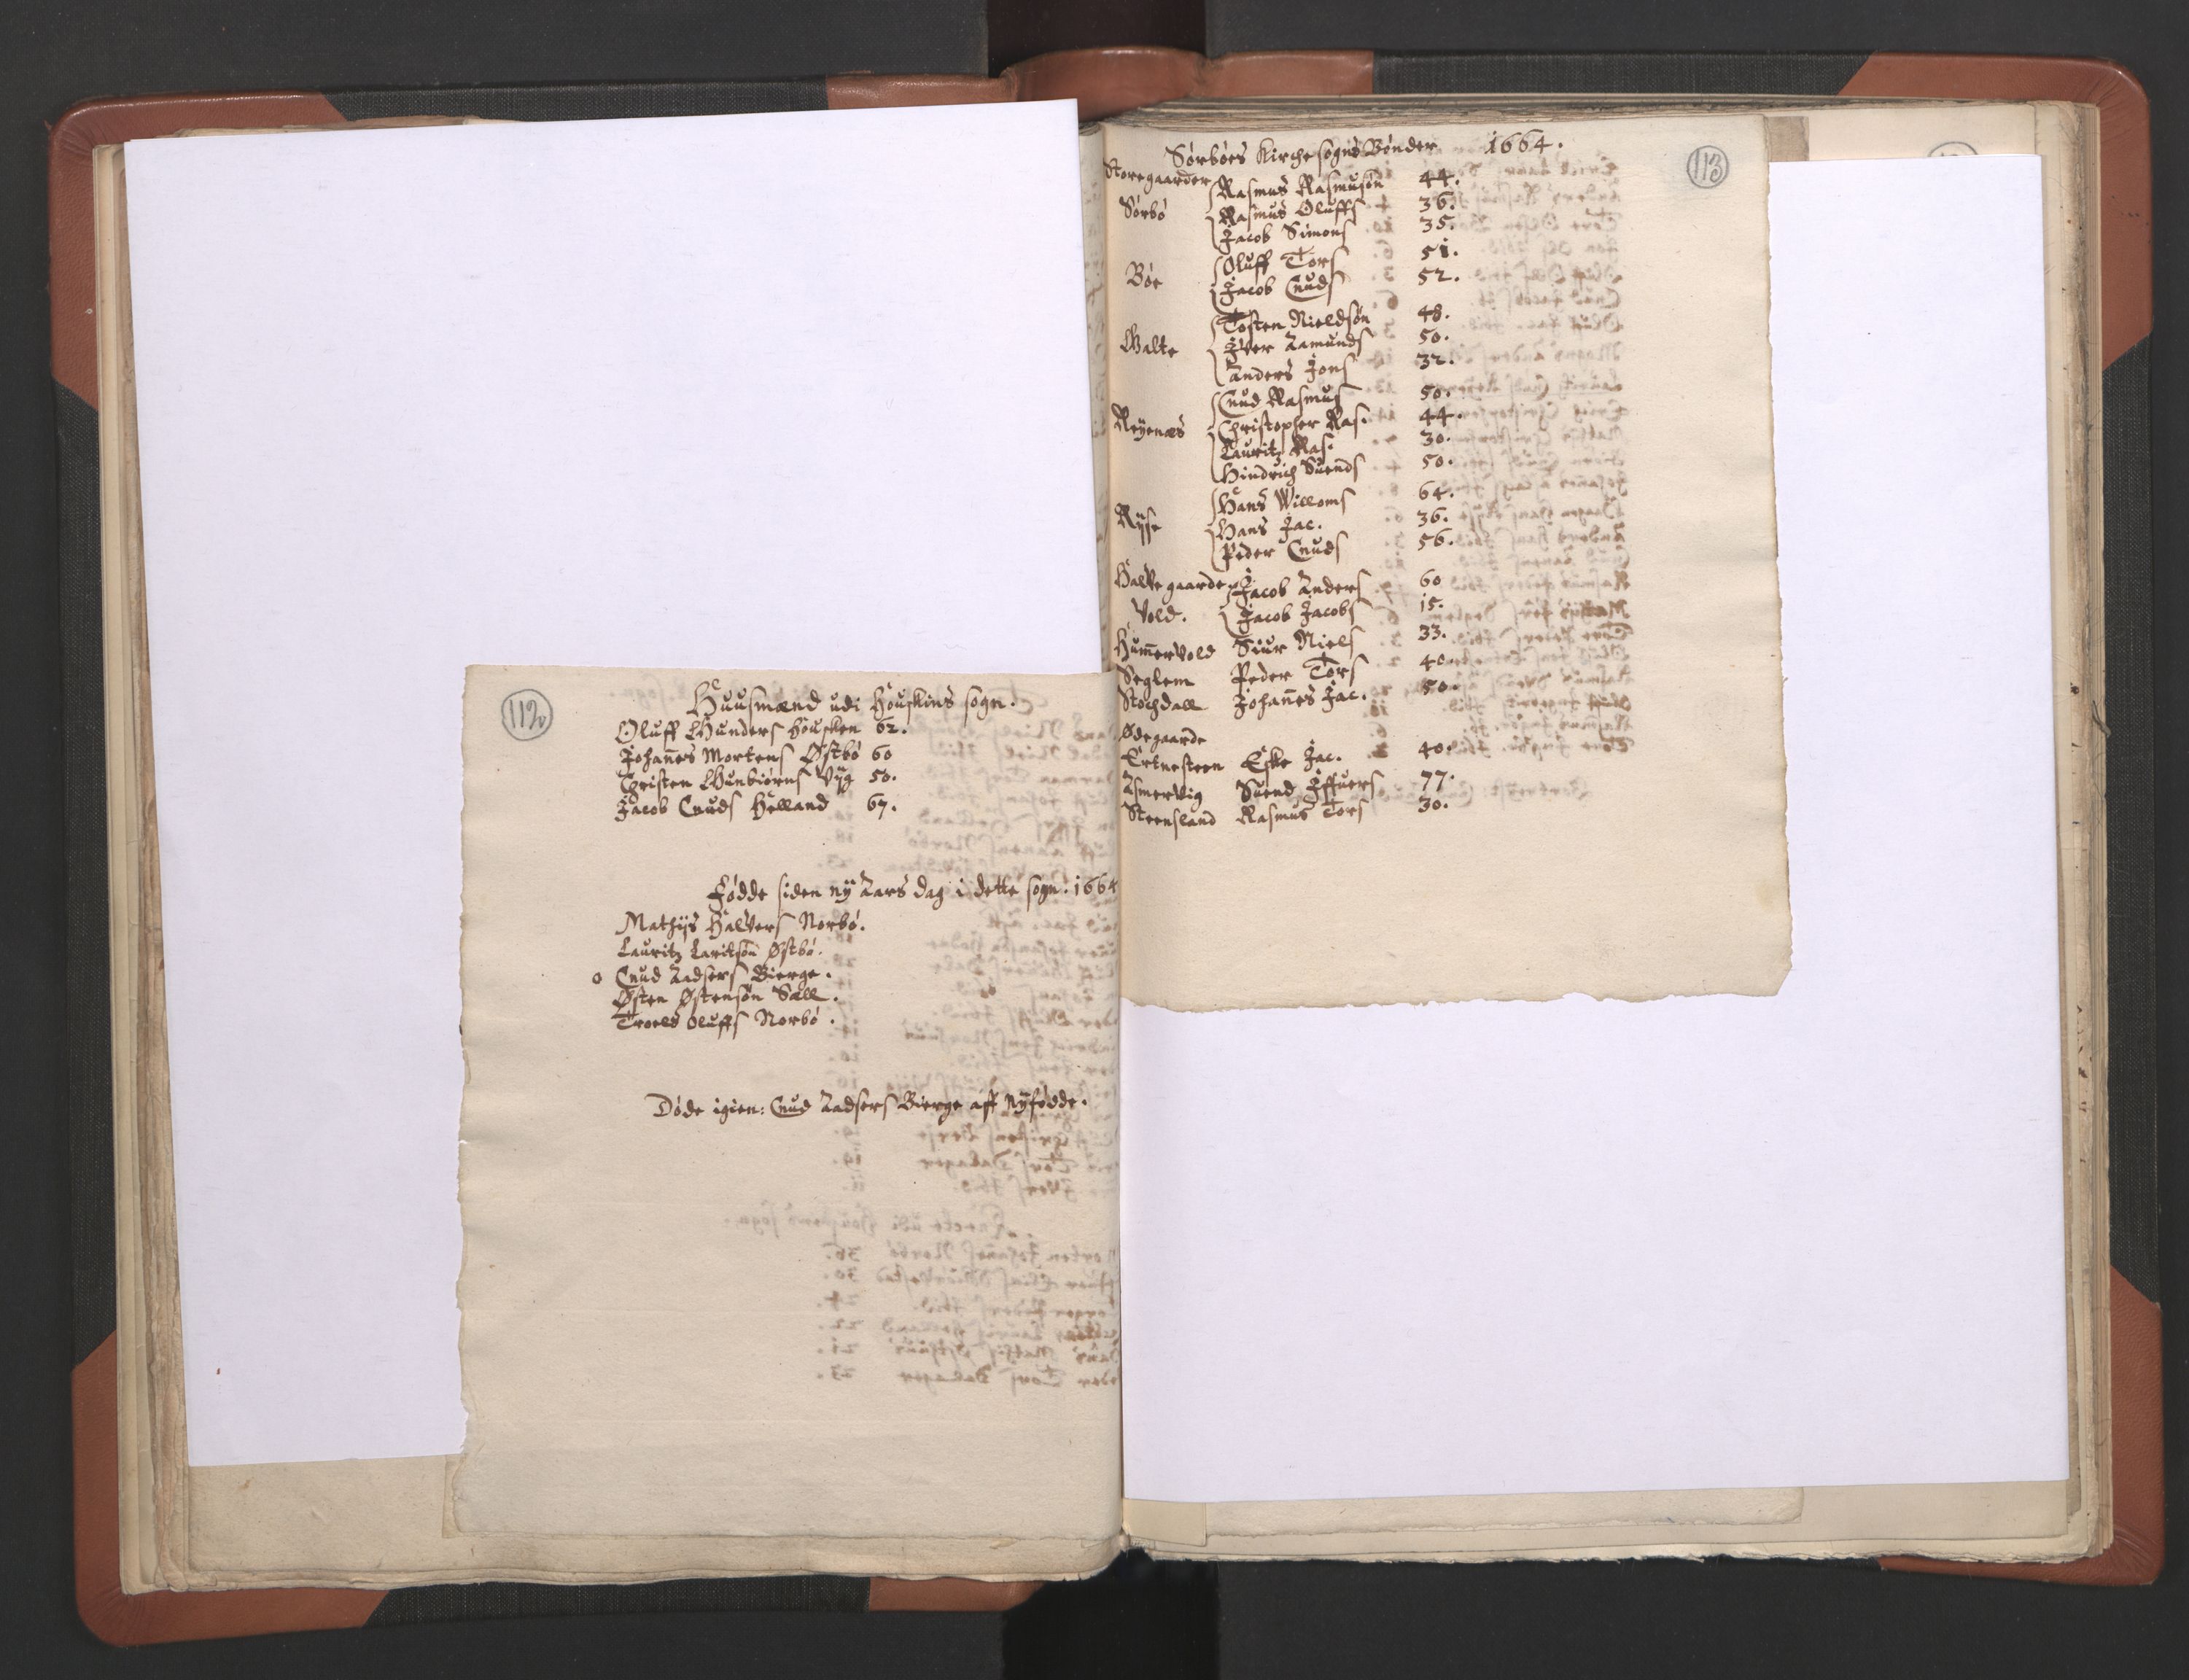 112
Huusmænd udi Houskins sogn.
Oluff Gunders Housken 62.
Johañes Mortens Østbø 60
Christen Gunbiørns Vijg 50.
Jacob Cnuds Helland 67.
Fødde siden nÿ Aars dag i dette sogn. 1664
Mathijs Halvers Norbø.
Lauritz Laritsøn Østbø.
o Cnud Aadsers Bierge.
Østen Østensøn Sæll.
Troels Oluffs Norbø.
Døde igien: Cnud Aadsers Bierge aff nÿfødde.
113
Sørbøes Kirche sogns Bønder 1664.
Store gaarder
Rasmus Rasmusøn 44.
Sørbø Rasmus Oluffs 36.
Jacob Simons 35.
Oluff Tors 51.
Bøe Jacob Cnuds 52.
Tosten Nieldsøn 48.
Galte Iver Aamunds 50.
Anders Jons 32.
Cnud Rasmus 50.
Reÿenæs Christopher Ras. 44.
Lauritz Ras. 30.
Hindrich Suends 50.
Hans Willoms 64.
Rÿse Hans Jac. 36.
Peder Cnuds 56.
Halve gaarde Jacob Anders 60
Vold. Jacob Jacobs 15.
Hum̃ervold Siur Niels 33.
Seglem Peder Tors 40.
Stochdall Johañes Jac. 50.
Ødegaarde
Ertnesteen Eske Jac. 40.
Asmervig Suend Iffuers 77.
Steensland Rasmus Tors 30.